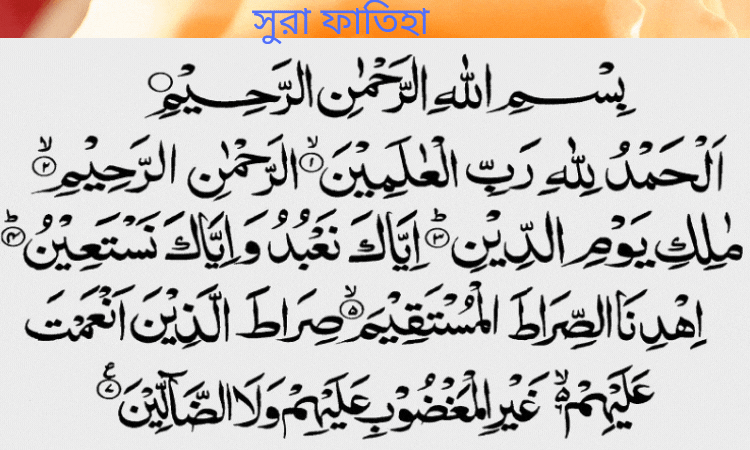 সুরা ফাতিহা
بِسْمِ اللهِ الرَّحْمٰنِ الرَّحِيْمِ
اَلْحَمْدُ لِلّٰهِ رَبِّ الْعٰلَمِيْنَ ۙ﴿۱﴾ الرَّحْمٰنِ الرَّحِيْمِ ۙ﴿۲﴾
مٰلِكِ يَوْمِ الدِّيْنِ ؕ﴿۳﴾ اِيَّاكَ نَعْبُدُ وَ اِيَّاكَ نَسْتَعِيْنُ ؕ﴿۴﴾
اِهْدِنَا الصِّرَاطَ الْمُسْتَقِيْمَ ۙ﴿۵﴾ صِرَاطَ الَّذِيْنَ اَنْعَمْتَ
عَلَيْهِمْ ۙ۬ غَيْرِ الْمَغْضُوْبِ عَلَيْهِمْ وَلَا الضَّآلِّيْنَ ﴿۷﴾ ع